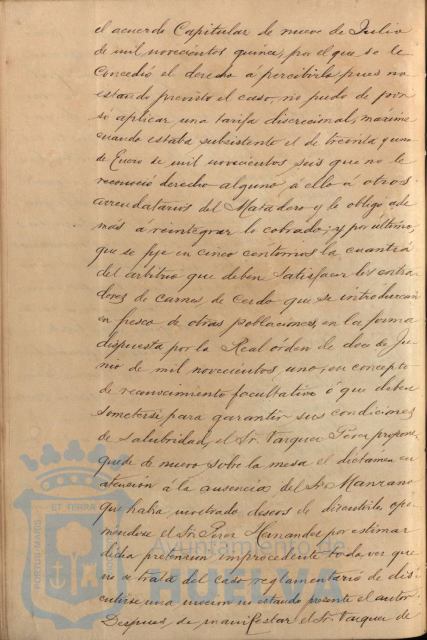 el acuerdo Capitular de nueve de Julio
de mil novecientos quince, por el que se le
concedió el derecho a percibirlo pues no
estando previsto el caso, no pudo de por
se aplicar una tarifa discrecional, máxime
cuando estaba subsistente el de treinta y uno
de Enero de mil novecientos seis que no le
reconoció derecho alguno á ello á otros
arrendatarios del Matadero y le obligó ade
más a reintegrar lo cobrado; y por último,
que se fije en cinco centimos la cuantía
del arbitrio que deben satisfacer los
de carnes de Cerdo que se introduzcan
en fresco de otras poblaciones, en la forma
dispuesta por la Real órden de doce de Ju
nio de mil novecientos uno, en concepto
de reconocimiento facultativo á que deben
someterse para garantir sus condiciones
de Salubridad, el Sr. Vazquez Perez propone
quede de nuevo sobre la mesa el dictámen en
atencion á la ausencia del Sr. Manzano
que había mostrado deseos de discutirlo opo
niendose el Sr. Perez Hernandez por estimar
dicha pretension improcedente toda vez que
no se trata del caso reglamentario de dis
cutirse una mocion no estando presente el autor.
Despues de manifestar el Sr. Vazquez de
PORTUS MARIS
ET TERRAE
Ayuntamiento de
HUELVA